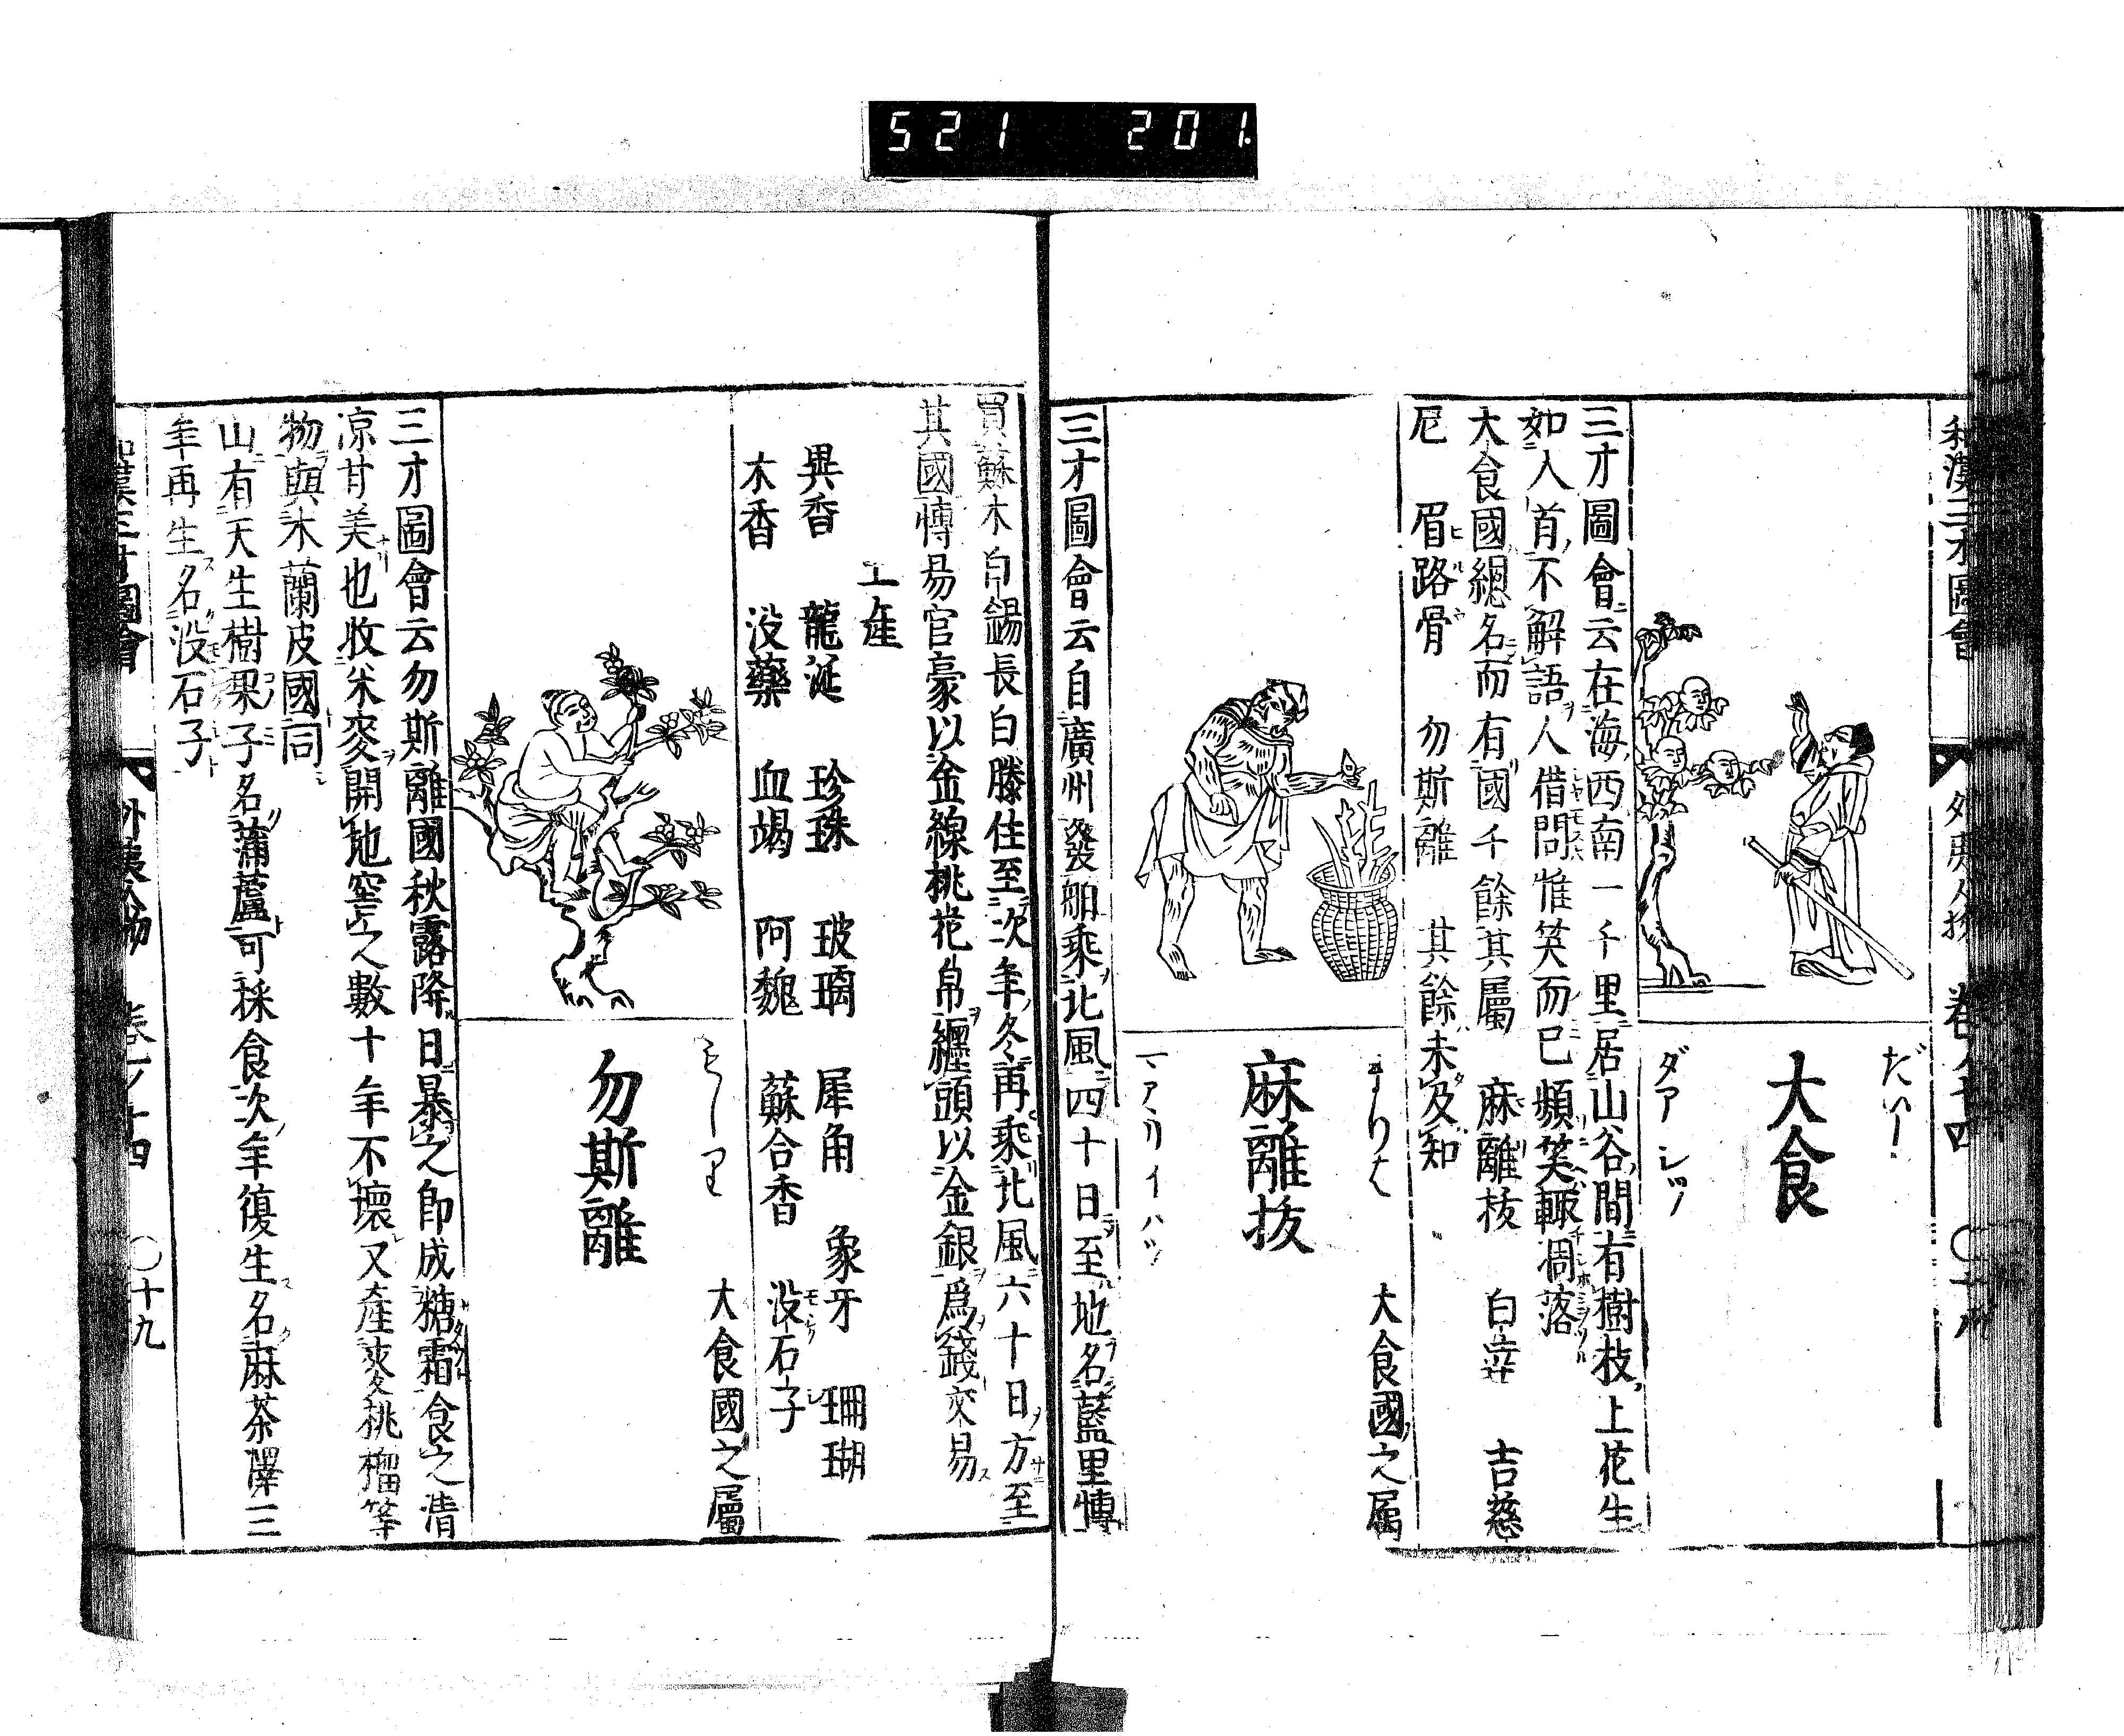 521 201.
大食
ダアシッ
三才圖會云在海西南一千里居山谷間有樹枝上花生
如人首不解語人借問惟笑而已頻笑輙凋落
大食國總名而有國千餘其屬 麻離抜 白達 吉慈
尼 眉路骨 勿斯離 其餘未及知
麻離抜
マアリイハツ
大食國之屬
三才圖會云自廣州發舶乘北風四十日至地名藍里博
買蘇木白錫長白藤住至次年冬再乘北風六十日方至
其國博易官豪以金線桃花帛纒頭以金銀爲錢交易
土産
異香 龍涎 珍珠 玻璃 犀角 象牙 珊瑚
木香 没藥 血竭 阿魏 蘇合香 没石子
勿斯離
大食國之屬
三才圖會云勿斯離國秋露降日暴之即成糖霜食之清
凉甘美也收米麥開地窖之數十年不壞又産夾桃榴等
物與木蘭皮國同
山有天生樹果子名蒲蘆可採食次年復生名麻茶澤三
年再生名没石子
和漢三才圖會 外夷人物 卷ノ十四 〇十九